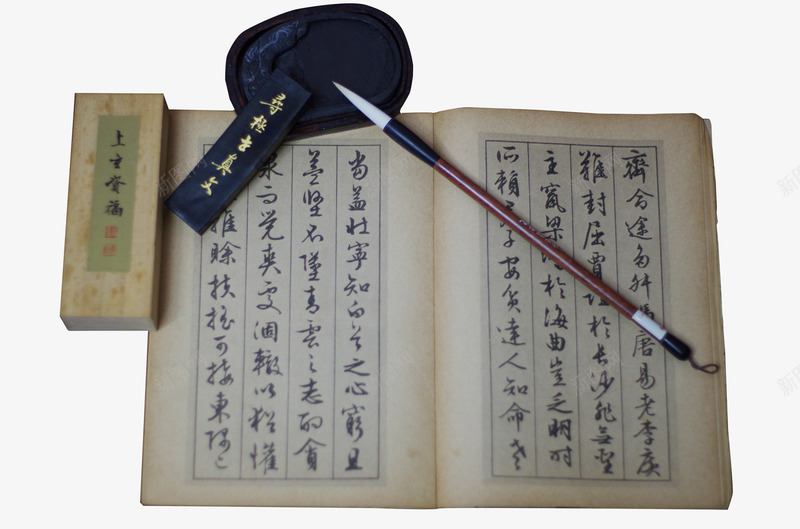 齊命途多舛馮唐易老李廣
難封屈賈誼於長沙非無聖
主竄梁鴻於海曲豈乏明時
所賴君子安貧達人知命老
當益壯寧知白首之心窮且
益堅不墜青雲之志酌貪
泉而覺爽處涸轍以猶懽
雖賒扶搖可接東隅已
尋極真文
上福